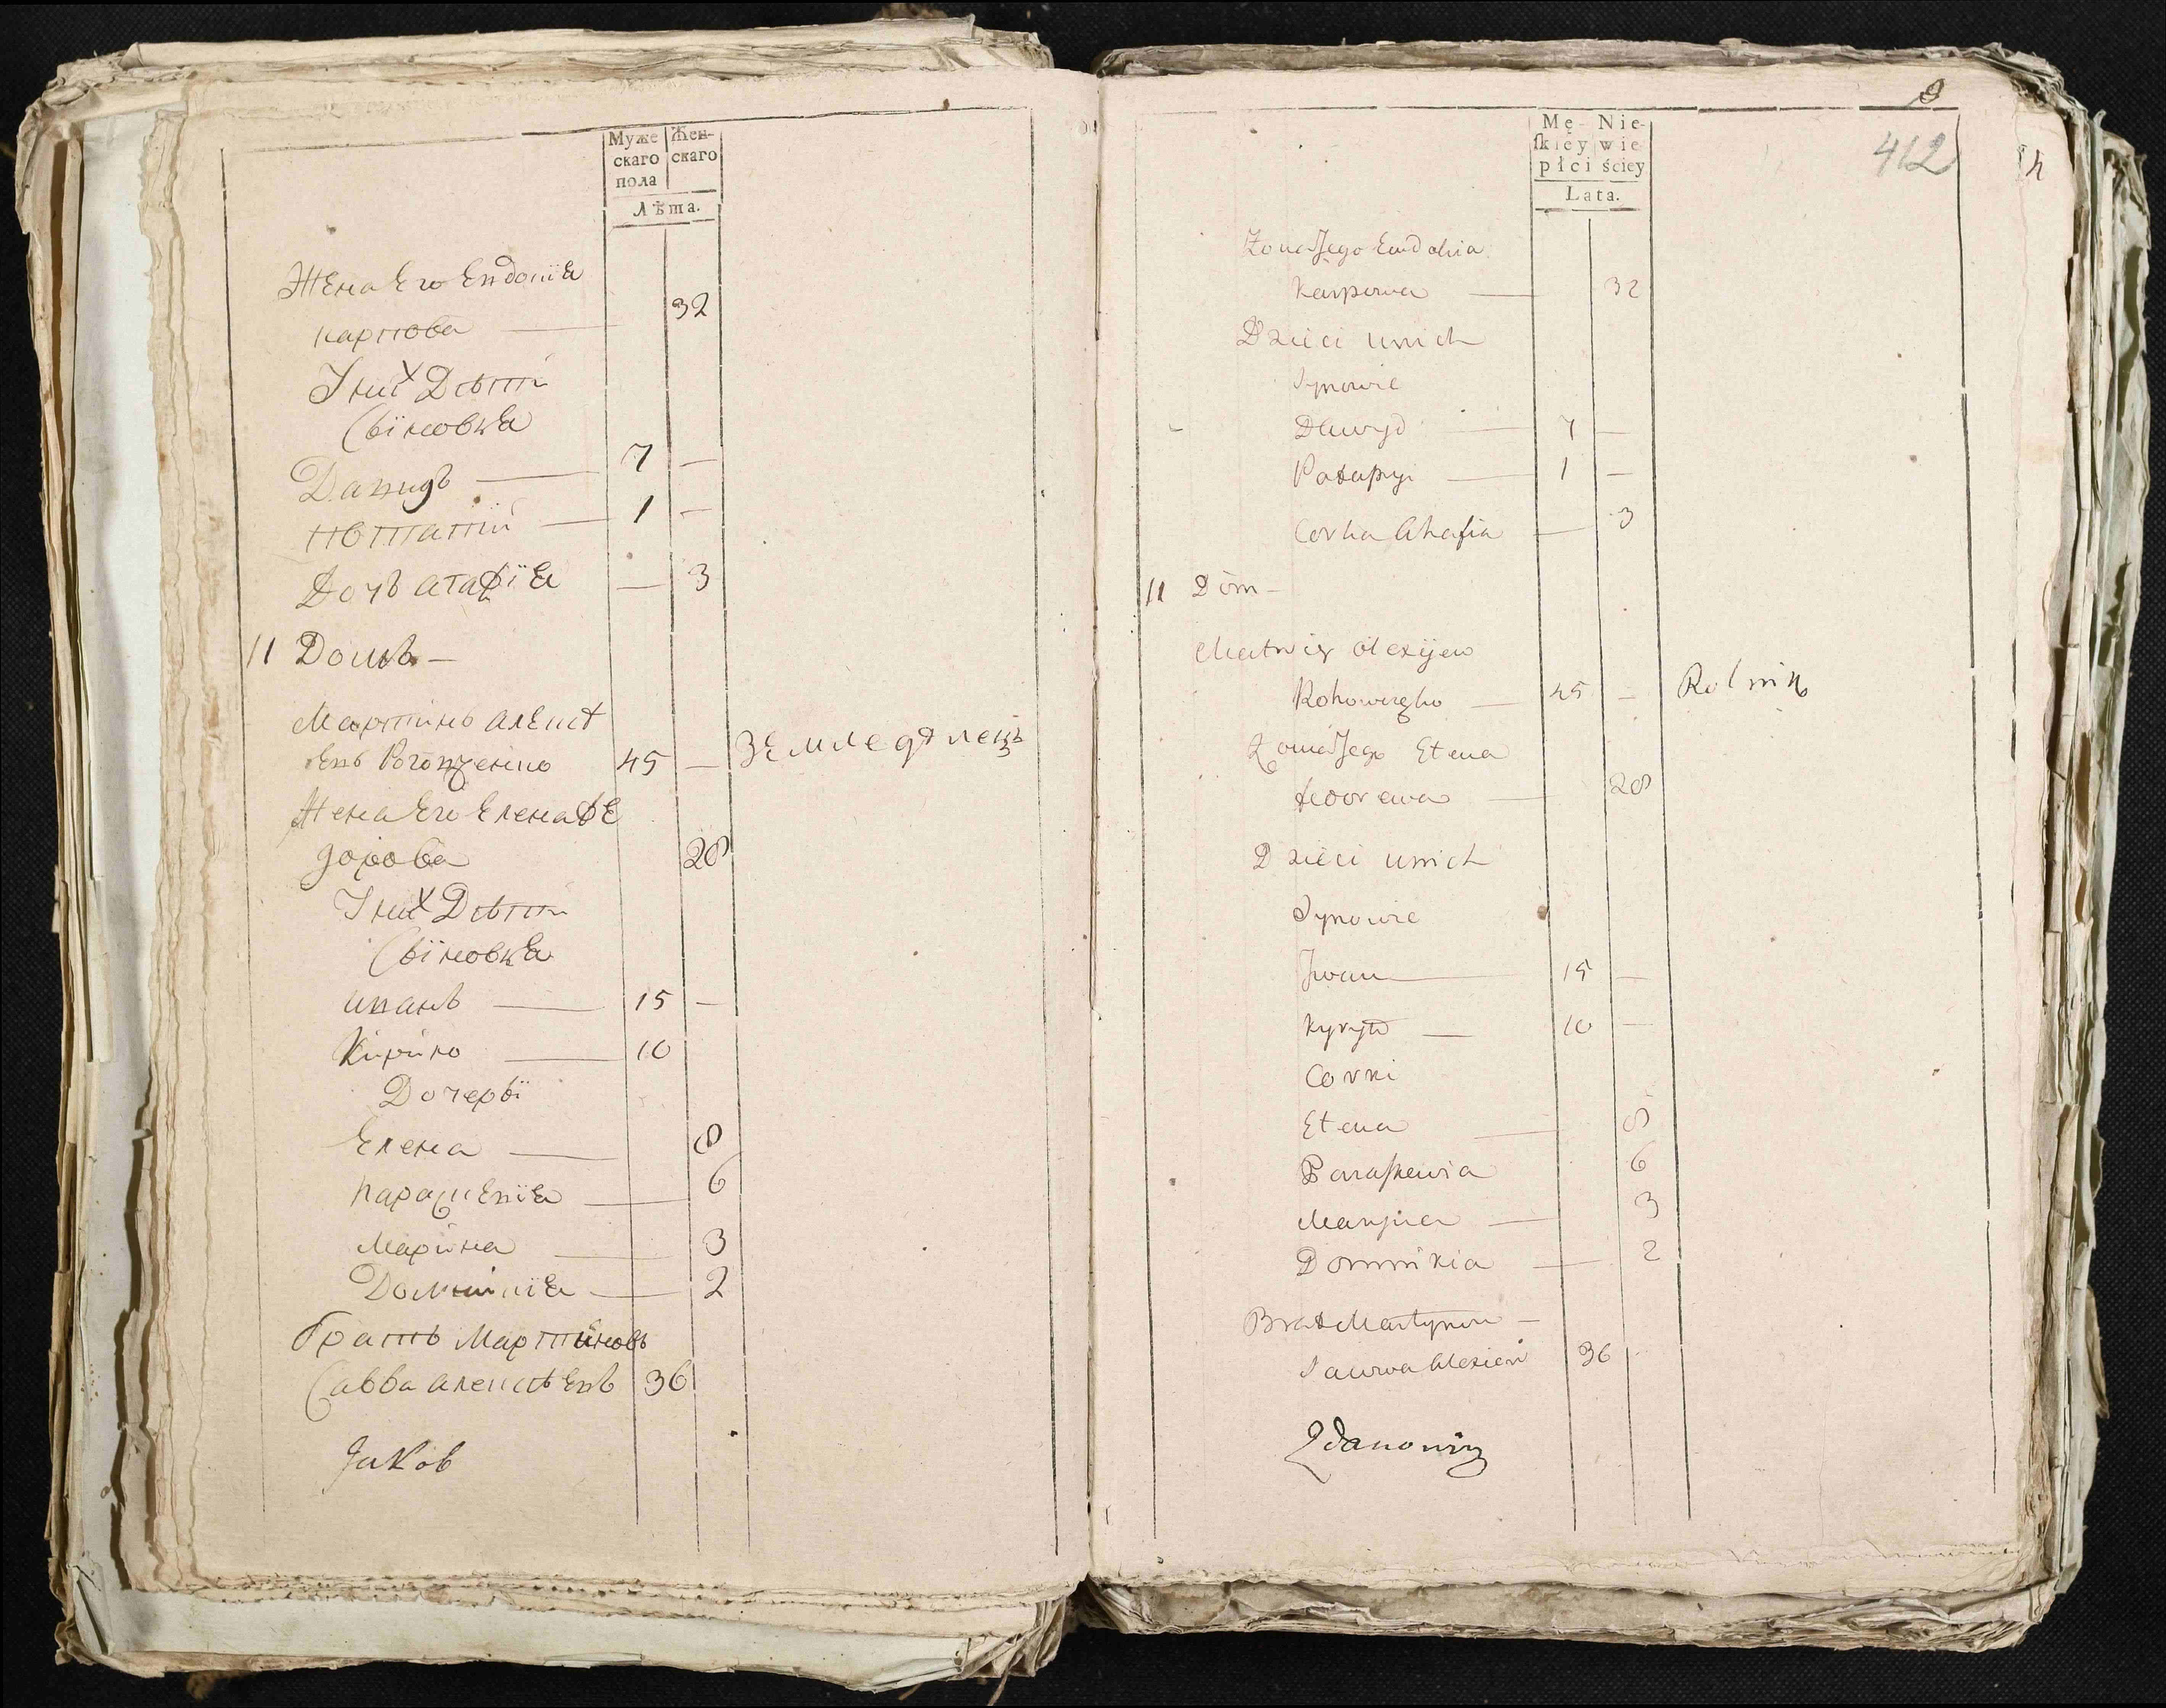 Муже Жен-
скаго скаго
пола
Лѣта.
Жена Его Евдокія
карпова — 32
У них Дѣти
Сыновья
Давидъ — 7 —
потапій — 1 —
Дочь агафія — 3
11 Домъ —
Мартинъ алексѣ
евъ 45 — Земледѣлецъ
Жена Его Елена Фе
дорова 28
У них Дѣти
Сыновья
иванъ — 15 —
Кирило — 10
Дочеры
Елена — 8
параскевія — 6
Марина — 3
Домникія — 2
братъ Мартиновъ
Савва алексѣевъ 36
Яковъ
9
Mę- Nie-
ſkiéy wie
płci ściey
Lata.
412
Zona Jego Eudokia
Karpowa — 32
Dzieci u nich
Synowie
Dawyd — 7 —
Potapyi — 1 —
Corka Ahafia — 3
11 Dom —
Olexijew
45 — Rolnik
Zona Jego Elena
fedorowa — 28
Dzieci u nich
Synowie
Iwan — 15 —
Kyryło — 10 —
Corki
Elena — 8
Paraſkewia 6
Maryna — 3
Domnikia — 2
Brat Martynow —
Sawwa Alexiew 36
Zdanowicz